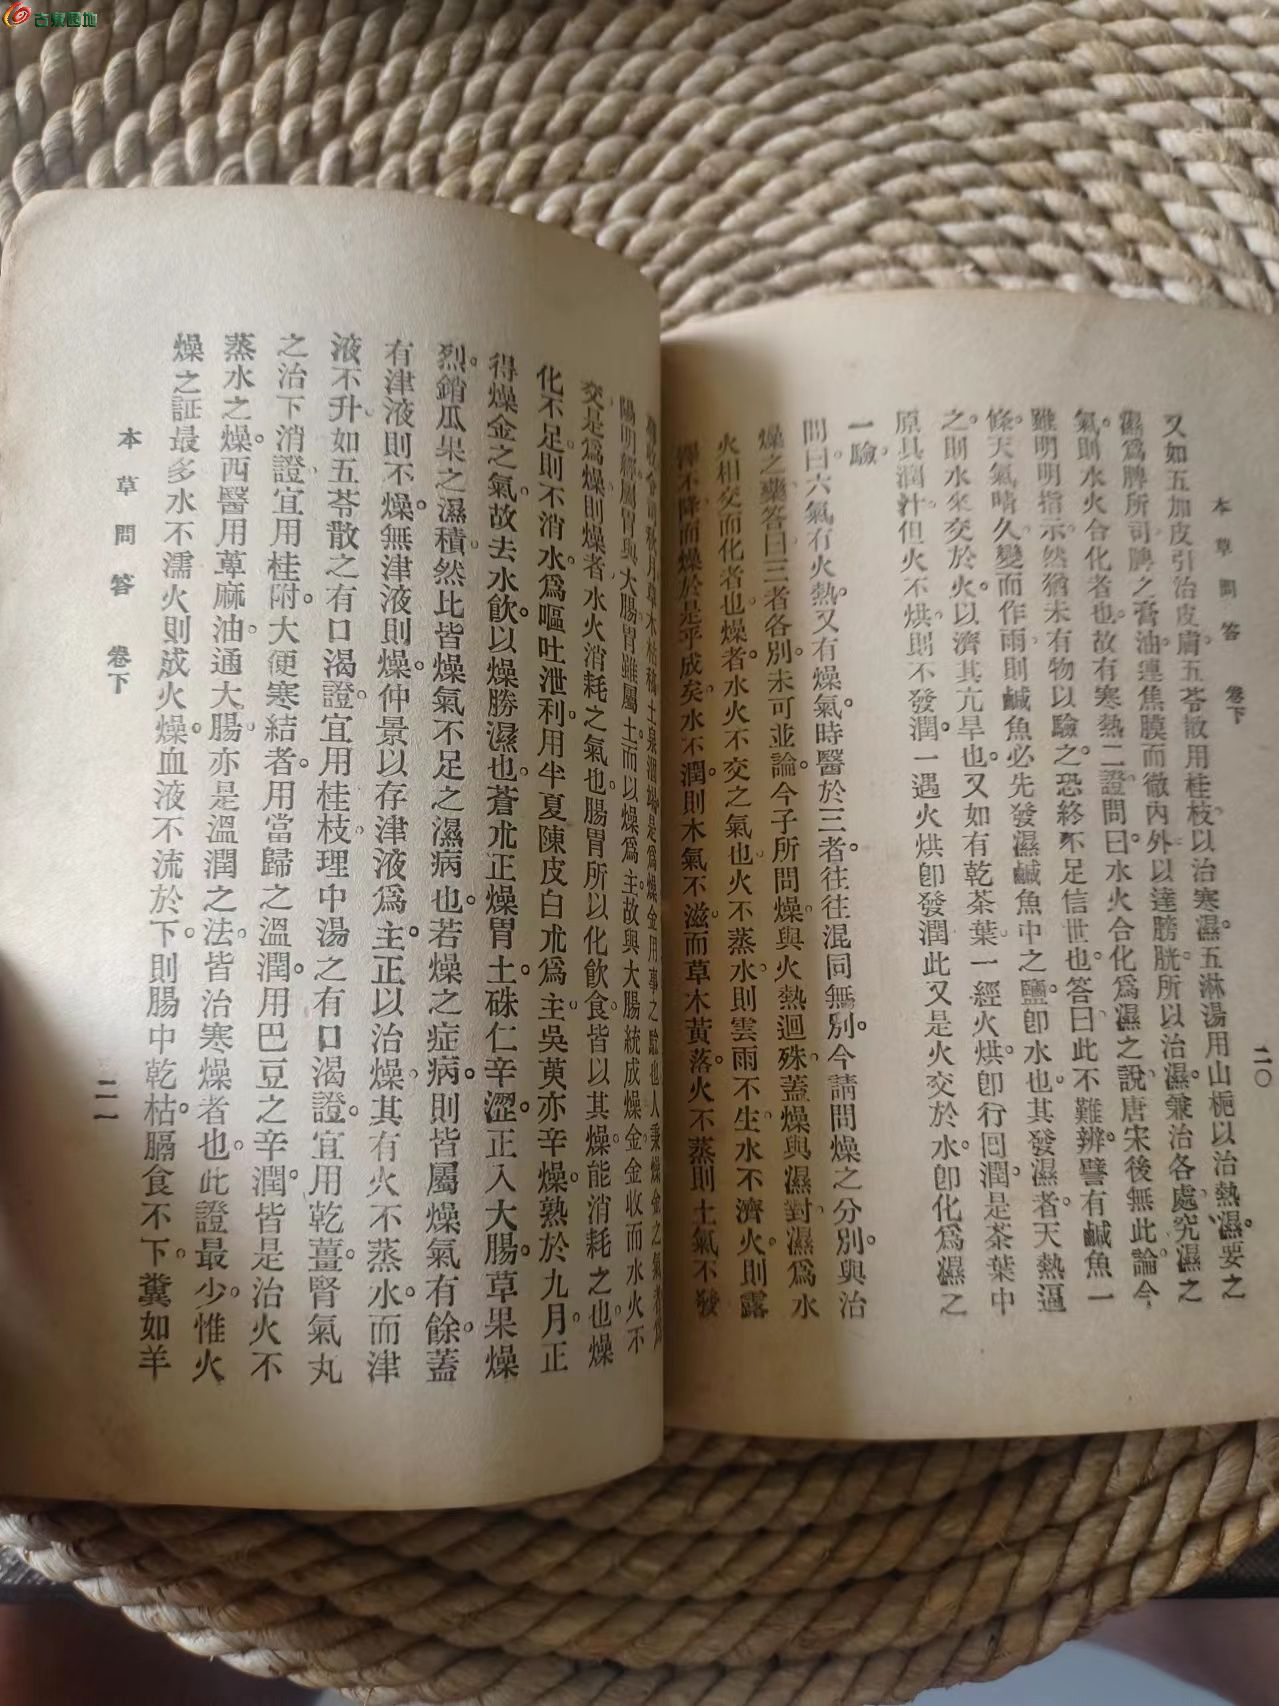 古泉园地
本草問答 卷下
二〇
又如五加皮引治皮膚。五苓散用桂枝以治寒濕。五淋湯用山梔以治熱濕。要之
濕爲脾所司。脾之膏油連焦膜而徹內外。以達膀胱。所以治濕。兼治各處。究濕之
氣則水火合化者也。故有寒熱二證。問曰。水火合化爲濕之說。唐宋後無此論。今
雖明明指示。然猶未有物以驗之。恐終不足信世也。答曰。此不難辨。譬有鹹魚一
條。天氣晴久變而作雨。則鹹魚必先發濕。鹹魚中之鹽。卽水也。其發濕者。天熱逼
之。則水來交於火。以濟其亢旱也。又如有乾茶葉一經火烘。卽行回潤。是茶葉中
原具潤汁。但火不烘則不發潤。一遇火烘卽發潤。此又是火交於水。卽化爲濕之
一驗。
問曰。六氣有火熱。又有燥氣。時醫於三者。往往混同無別。今請問燥之分別。與治
燥之藥。答曰。三者各別。未可並論。今子所問燥與火熱迴殊。蓋燥與濕對。濕爲水
火相交而化者也。燥者水火不交之氣也。火不蒸水。則雲雨不生。水不濟火。則露
澤不降。而燥於是乎成矣。水不潤則木氣不滋。而草木黃落。火不蒸則土氣不發
秋月草木枯槁。土泉涸竭。是爲燥金用事之驗也。人秉燥金之氣者爲
陽明經。屬胃與大腸。胃雖屬土。而以燥爲主。故與大腸統成燥金。金收而水火不
交。是爲燥。則燥者水火消耗之氣也。腸胃所以化飲食。皆以其燥能消耗之也。燥
化不足則不消水。爲嘔吐泄利。用半夏陳皮白朮爲主。吳萸亦辛燥。熟於九月。正
得燥金之氣。故去水飲。以燥勝濕也。蒼朮正燥胃土。硃仁辛澀。正入大腸。草果燥
烈。銷瓜果之濕積。然比皆燥氣不足之濕病也。若燥之症病。則皆屬燥氣有餘。蓋
有津液則不燥。無津液則燥。仲景以存津液爲主。正以治燥。其有火不蒸水。而津
液不升。如五苓散之有口渴證。宜用桂枝。理中湯之有口渴證。宜用乾薑。腎氣丸
之治下消證。宜用桂附。大便寒結者。用當歸之溫潤。用巴豆之辛潤。皆是治火不
蒸水之燥。西醫用萆麻油。通大腸。亦是溫潤之法。皆治寒燥者也。此證最少。惟火
燥之証最多。水不濡火則成火燥。血液不流於下。則腸中乾枯。膈食不下。糞如羊
本草問答 卷下
二一